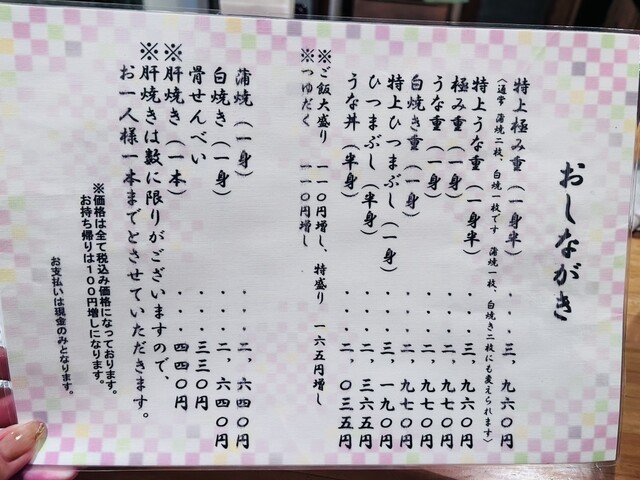 おしながき
特上極み重（一身半）・・・三、九六〇円
（通常 蒲焼二枚、白焼一枚です 蒲焼一枚、白焼き二枚にも変えられます）
特上うな重（一身半）・・・三、九六〇円
極み重（一身）・・・二、九七〇円
うな重（一身）・・・二、九七〇円
白焼き重（一身）・・・二、九七〇円
特上ひつまぶし（一身）・・・三、一九〇円
ひつまぶし（半身）・・・二、三六五円
うな丼（半身）・・・二、〇三五円
※ご飯大盛り 一一〇円増し、特盛り 一六五円増し
※つゆだく 一一〇円増し
蒲焼（一身）・・・二、六四〇円
白焼き（一身）・・・二、六四〇円
骨せんべい・・・三三〇円
※肝焼き（一本）・・・四四〇円
※肝焼きは数に限りがございますので、
お一人様一本までとさせていただきます。
※価格は全て税込み価格になっております。
お持ち帰りは１００円増しになります。
お支払いは現金のみとなります。